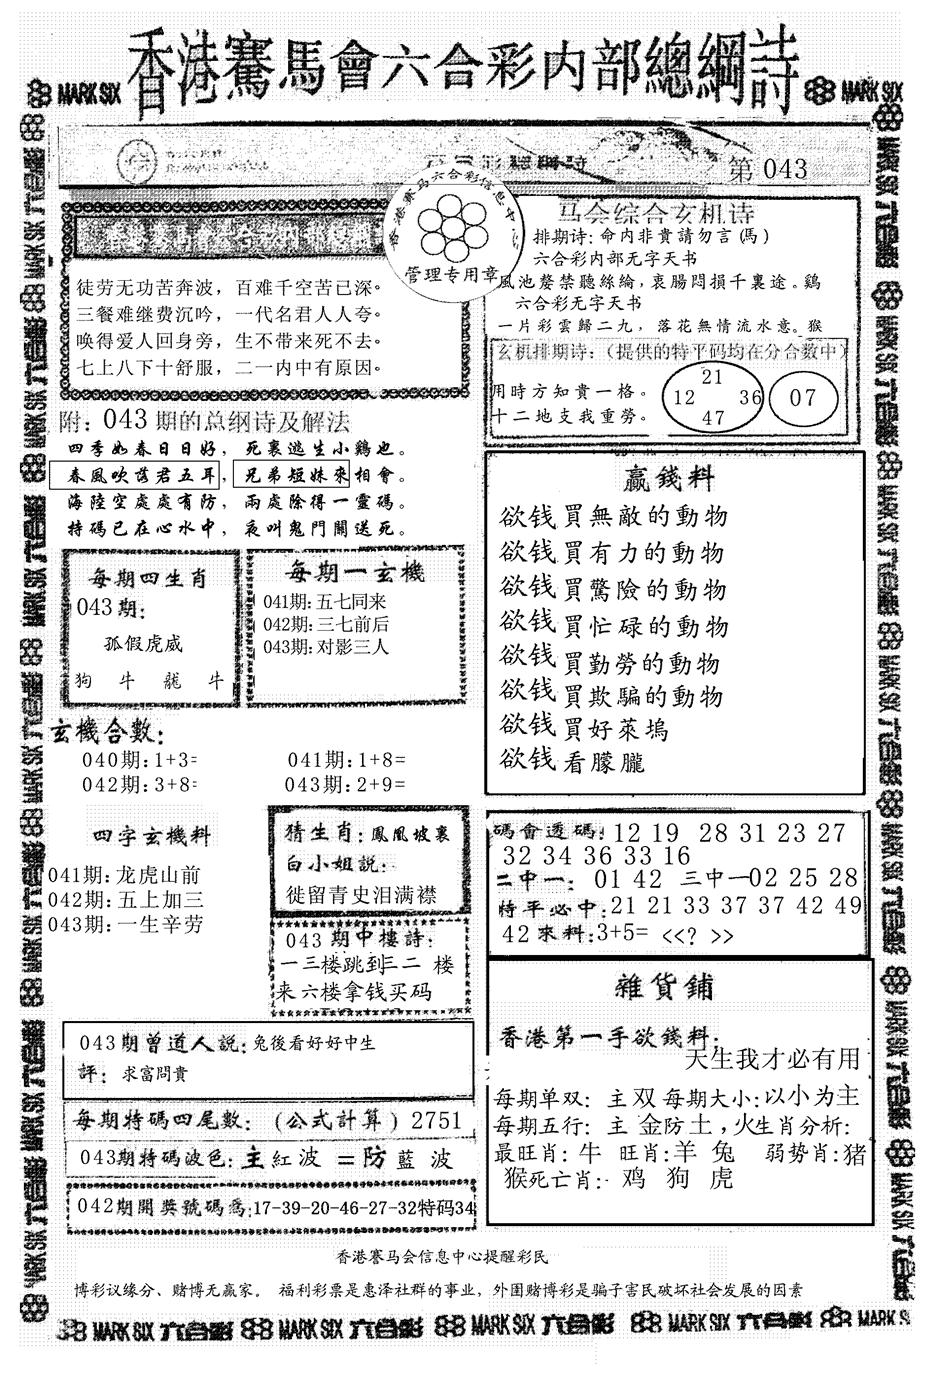 香港賽馬會六合彩内部總綱詩
MARK SIX
MARK SIX
第 043
香港賽马六合彩信息中心
管理专用章
徒劳无功苦奔波，百难千空苦已深。
三餐难继费沉吟，一代名君人人夸。
唤得爱人回身旁，生不带来死不去。
七上八下十舒服，二一内中有原因。
马会综合玄机诗
排期诗: 命内非貴請勿言 (馬)
六合彩内部无字天书
風池嫠禁聽絲綸，衷腸悶損千裏途。鷄
六合彩无字天书
一片彩雲歸二九，落花無情流水意。猴
玄机排期诗:（提供的特平码均在分合数中）
用時方知貴一格。
十二地支我重勞。
21
12 36
47
07
附: 043 期的总纲诗及解法
四季如春日日好，死裏逃生小鷄也。
春風吹落君五耳，兄弟短妹來相會。
海陸空處處有防，兩處除得一靈碼。
特碼已在心水中，夜叫鬼門關送死。
每期四生肖
043期:
孤假虎威
狗 牛 龍 牛
每期一玄機
041期: 五七同来
042期: 三七前后
043期: 对影三人
赢錢料
欲钱買無敵的動物
欲钱買有力的動物
欲钱買驚險的動物
欲钱買忙碌的動物
欲钱買勤勞的動物
欲钱買欺騙的動物
欲钱買好萊塢
欲钱看朦朧
玄機合數:
040期: 1+3= 041期: 1+8=
042期: 3+8= 043期: 2+9=
四字玄機料
041期: 龙虎山前
042期: 五上加三
043期: 一生辛劳
猜生肖: 鳳凰坡裏
白小姐説:
徙留青史泪满襟
043 期中樓詩:
一三楼跳到三二 楼
来六楼拿钱买码
碼會透碼: 12 19 28 31 23 27
32 34 36 33 16
二中一: 01 42 三中一02 25 28
特平必中: 21 21 33 37 37 42 49
42 來料: 3+5= <<? >>
雜貨鋪
香港第一手欲錢料:
天生我才必有用
每期单双: 主 双 每期大小: 以小为主
每期五行: 主 金防土，火生肖分析:
最旺肖: 牛 旺肖: 羊 兔 弱势肖: 猪
猴死亡肖: 鸡 狗 虎
043期曾道人説: 兔後看好好中生
評: 求富問貴
每期特碼四尾數: (公式計算) 2751
043期特碼波色: 主 紅 波 = 防 藍 波
042期開獎號碼爲: 17-39-20-46-27-32特码34
香港賽马会信息中心提醒彩民
博彩议缘分、赌博无赢家。 福利彩票是惠泽社群的事业，外围赌博彩是骗子害民破坏社会发展的因素
MARK SIX 六合彩 MARK SIX 六合彩 MARK SIX 六合彩 MARK SIX 六合彩 MARK SIX